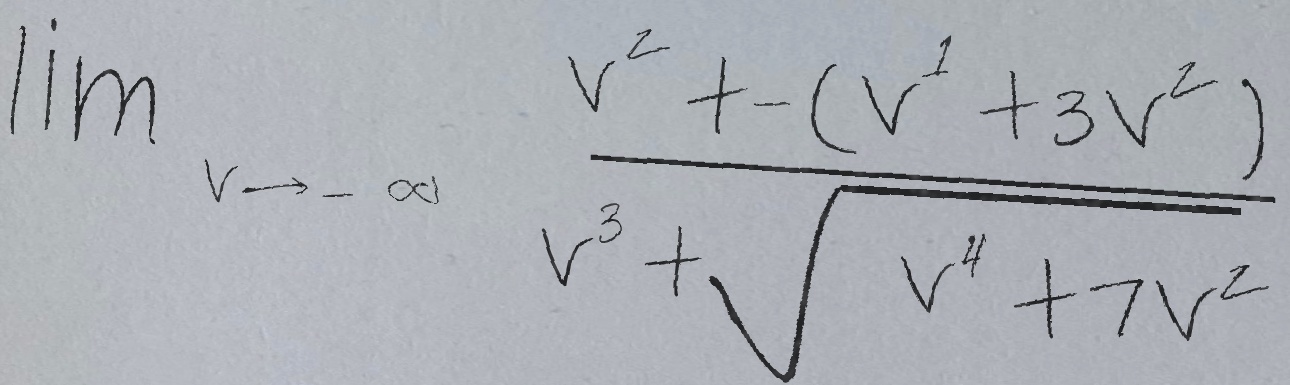 lim v→-∞ \frac{v^2 + -(v^1 + 3v^2)}{v^3 + \sqrt{v^4 + 7v^2}}